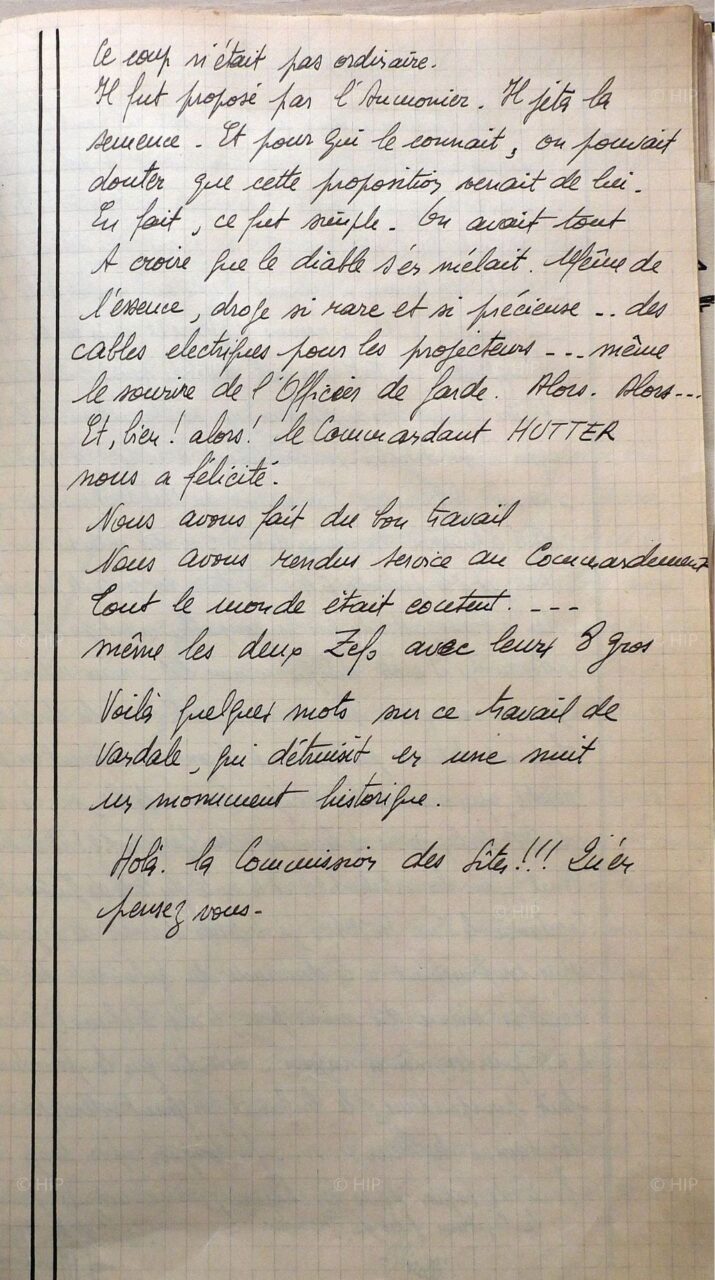 Ce coup n'était pas ordinaire.
Il fut proposé par l'Aumonier. Il jeta la
semence. Et pour qui le connait, on pouvait
douter que cette proposition venait de lui.
En fait, ce fut simple. On avait tout
A croire que le diable s'en mêlait. Même de
l'essence, droge si rare et si précieuse .. des
cables electriques pour les projecteurs --- même
le sourire de l'Officier de garde. Alors. Alors---
Et, bien! alors! le Commandant HUTTER
nous a félicité.
Nous avons fait du bon travail
Nous avons rendus service au Commandement
Tout le monde était content. ---
même les deux Zefs avec leurs 8 gros
Voilà quelques mots sur ce travail de
Vandale, qui détruisit en une nuit
un monument historique.
Holà. la Commission des Sites!!! Qu'en
pensez vous-
© HIP
© HIP
© HIP
© HIP
© HIP
© HIP